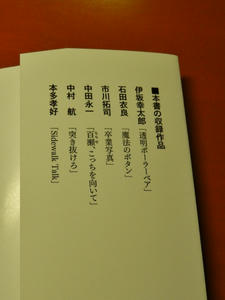 ■本書の収録作品
伊坂幸太郎「透明ポーラーベア」
石田衣良「魔法のボタン」
市川拓司「卒業写真」
中田永一「百瀬、こっちを向いて」
中村 航「突き抜けろ」
本多孝好「Sidewalk Talk」